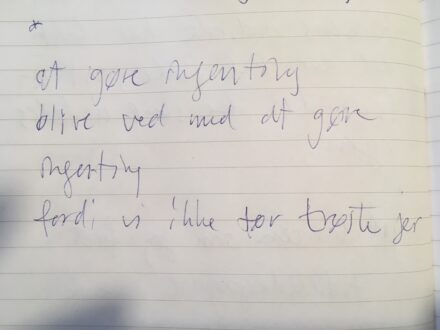 *
at gøre ingenting
blive ved med at gøre
ingenting
fordi vi ikke tør trøste jer